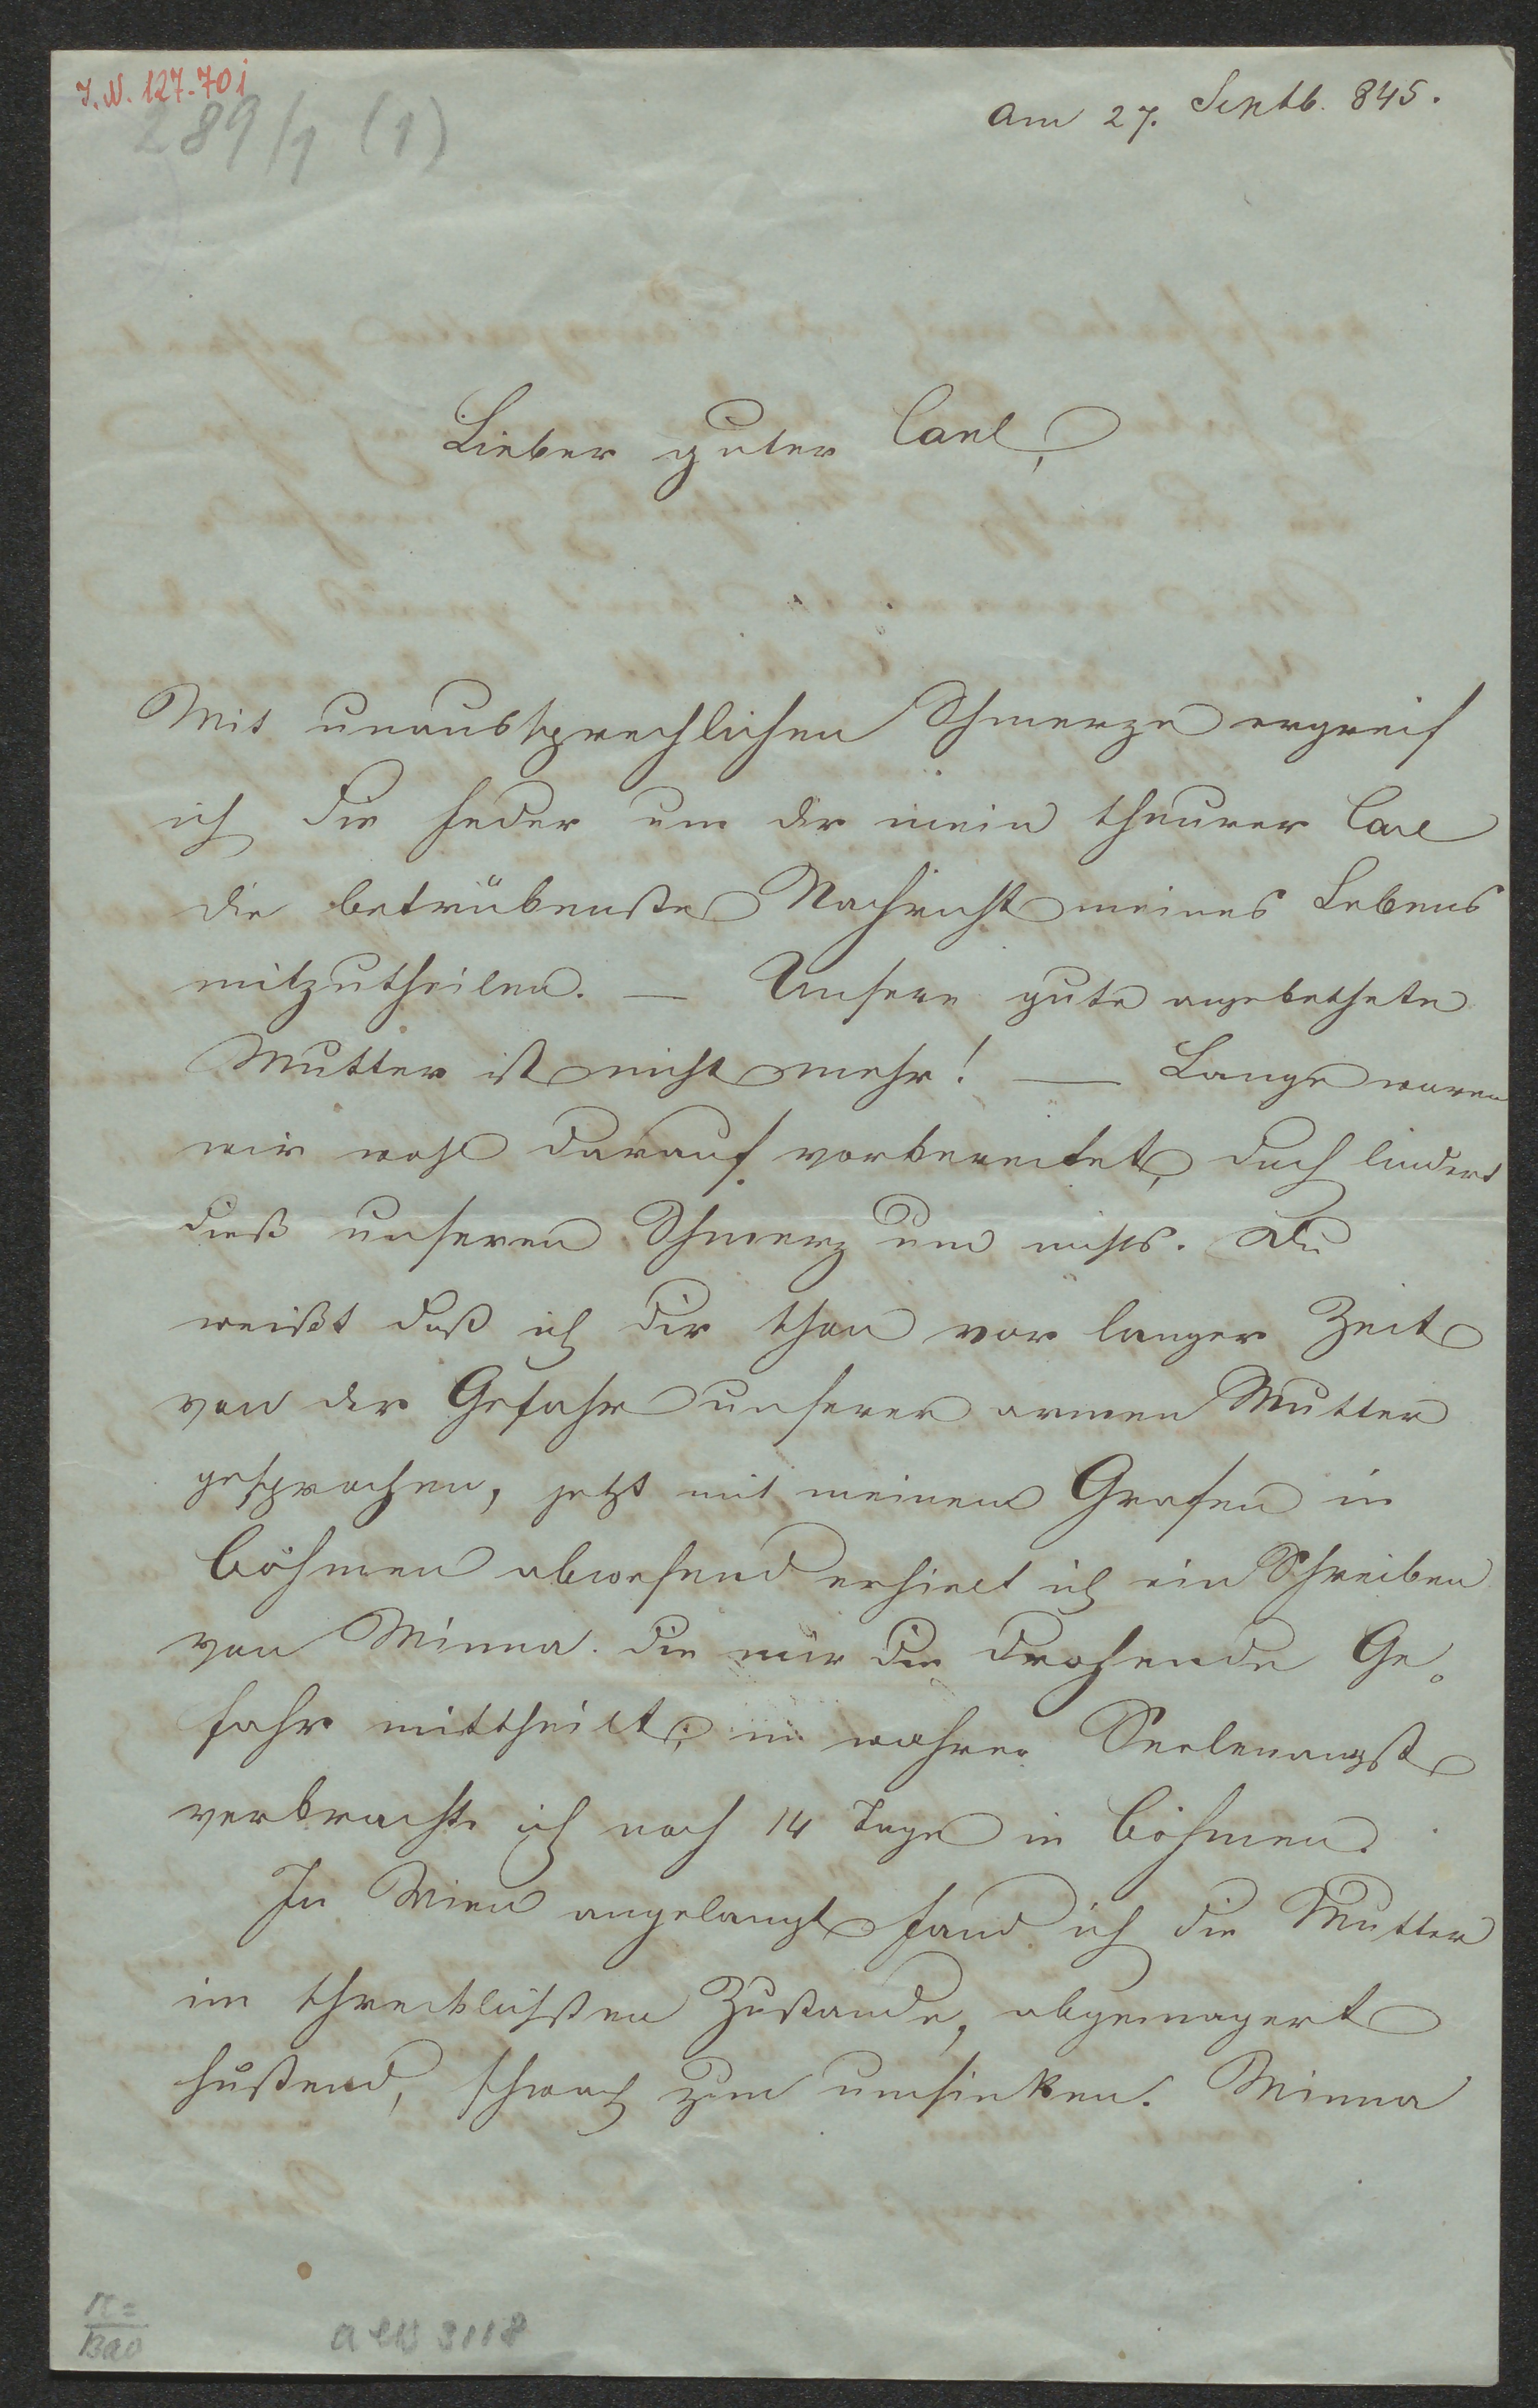 I. N. 127.701
289/1 (1)
Am 27. Septb. 845.
Lieber guter Carl,
Mit unaussprechlichen Schmerze ergreif
ich die Feder um dir mein theurer Carl
die betrübenste Nachricht meines Lebens
mitzutheilen. — Unsere gute angebethete
Mutter ist nicht mehr! — Lange waren
wir wohl darauf vorbereitet, doch lindert
dieß unseren Schmerz um nichts. Du
weißt daß ich dir schon vor langer Zeit
von der Gefahr unserer armen Mutter
gesprochen, jetzt mit meinem Grafen in
Böhmen abwesend erhielt ich ein Schreiben
von Minna die mir die drohende Ge-
fahr mittheilt, in wahrer Seelenangst
verbrachte ich noch 14 Tage in Böhmen.
In Wien angelangt fand ich die Mutter
im schrecklichsten Zustande, abgemagert
hustend, schwach zum umsinken. Minna